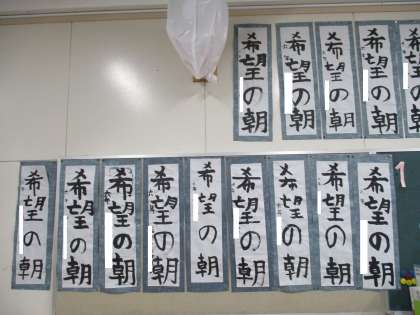 希望の朝
希望の朝
希望の朝
希望の朝
希望の朝
希望の朝
希望の朝
希望の朝
希望の朝
希望の朝
希望の朝
希望の朝
希望の朝
希望の朝
1